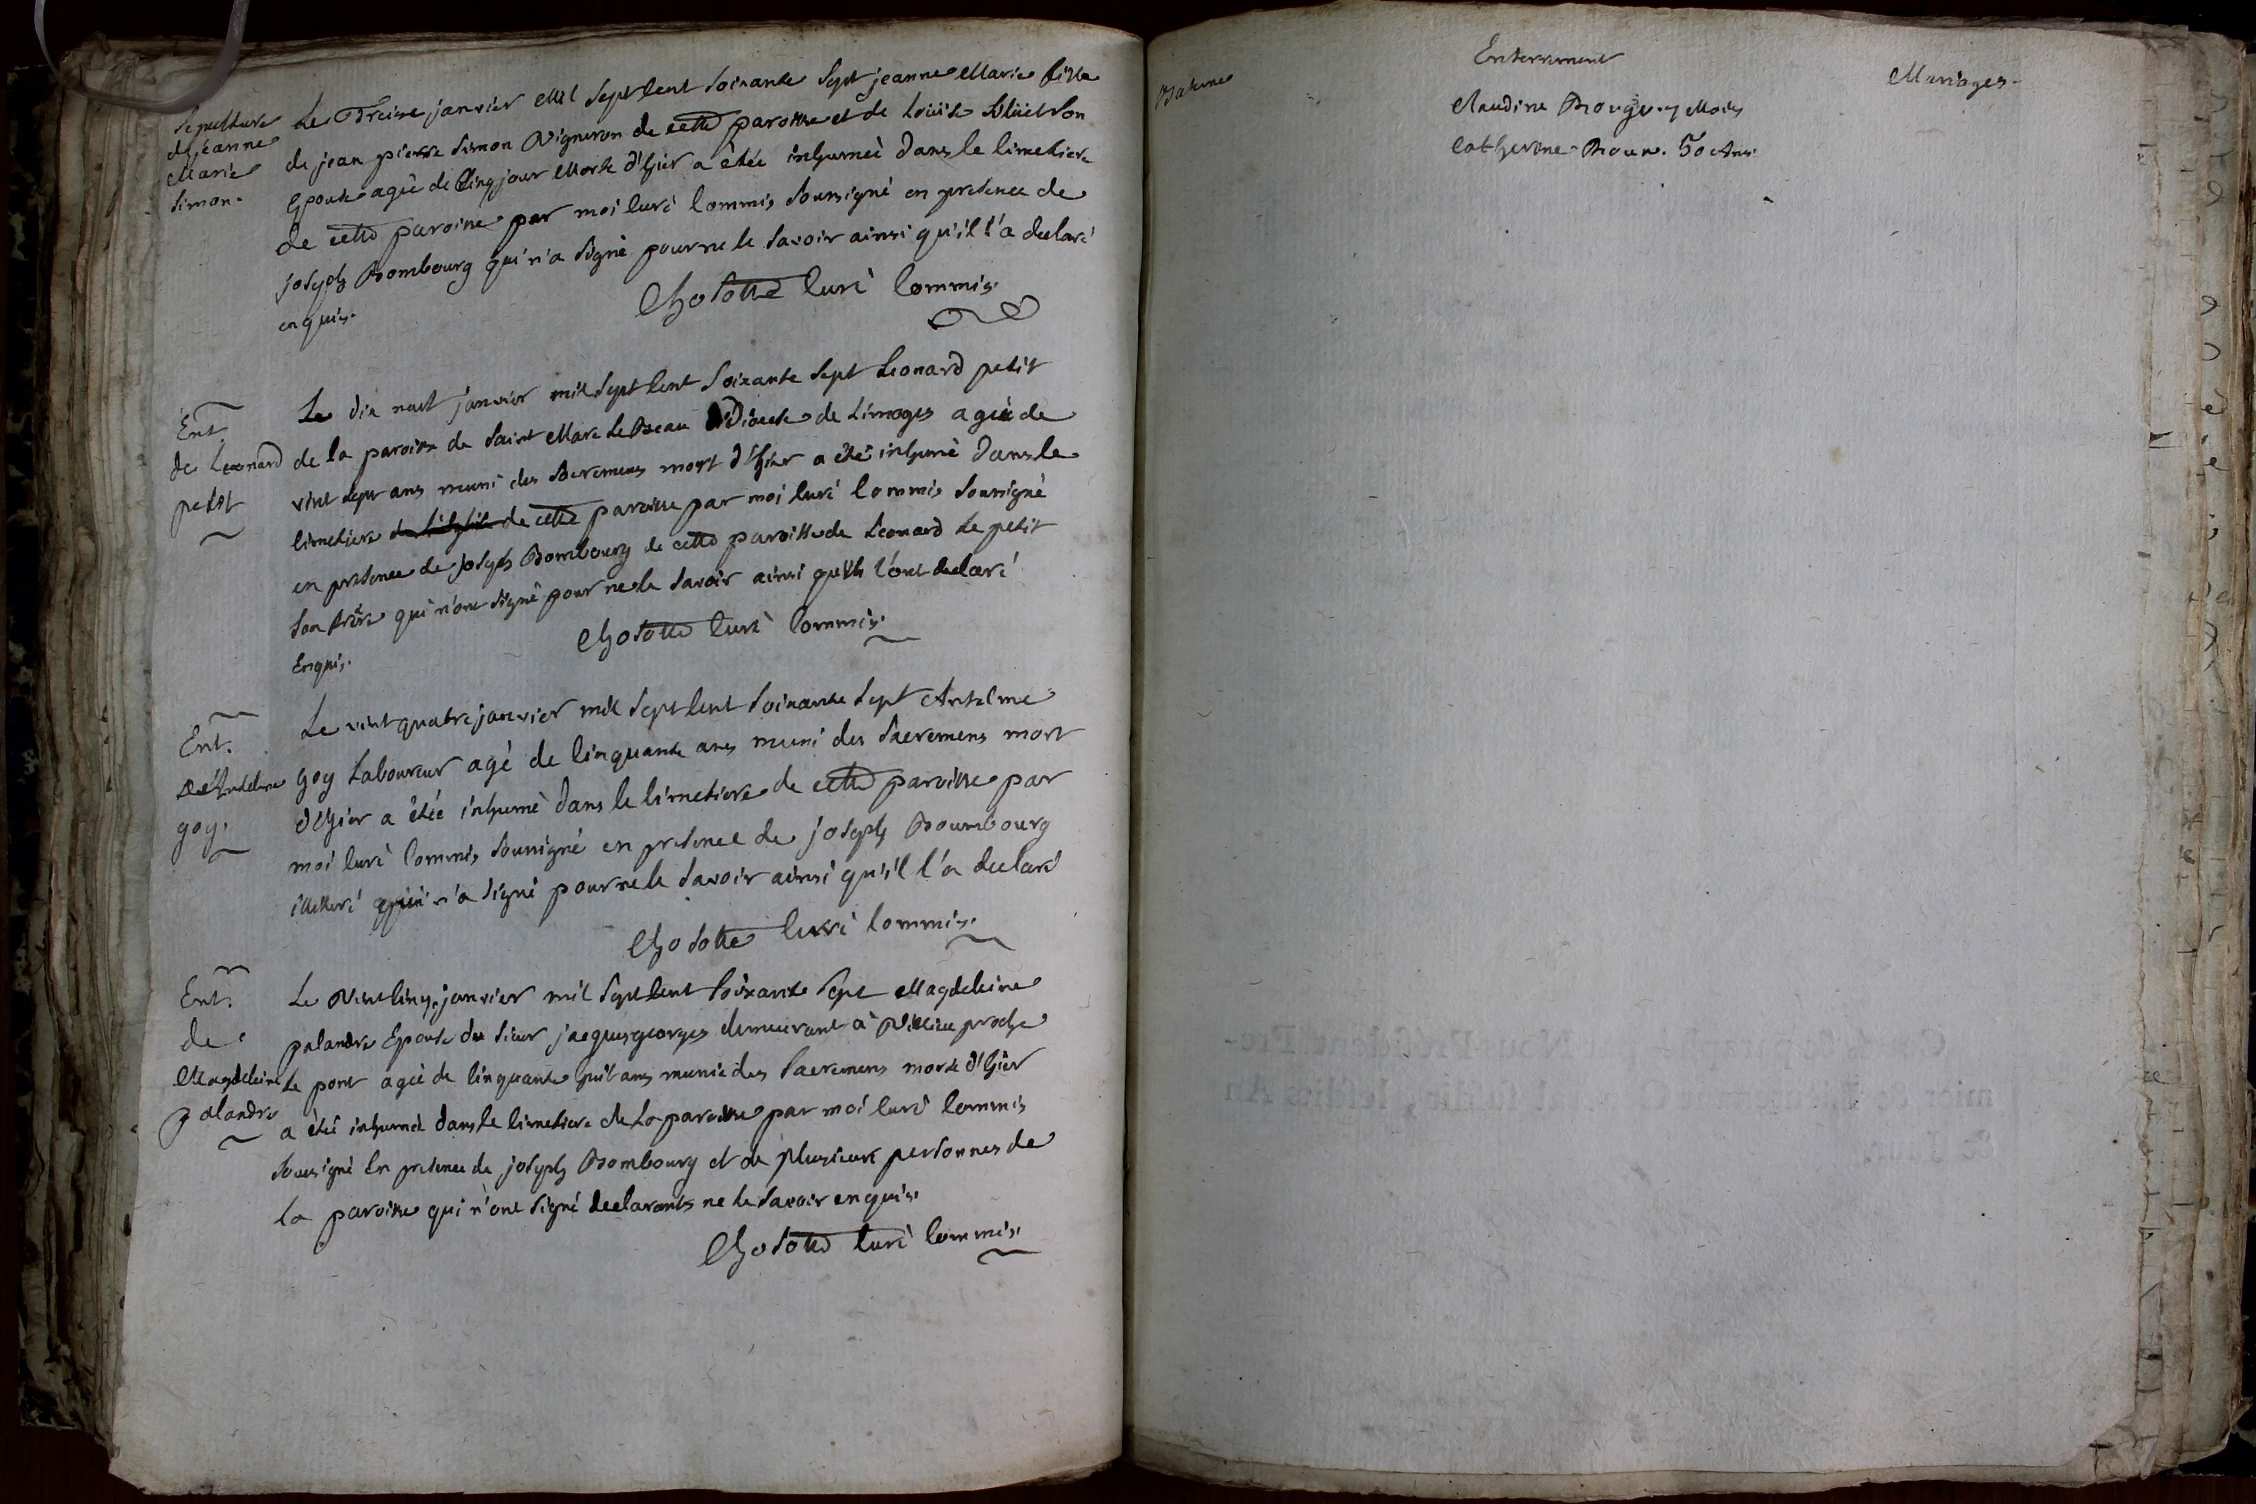 Sepulture
de jeanne
Marie
Simon.
Le Treise janvier Mil Sept Cent Soixante Sept jeanne Marie fille
de jean pierre Simon Vigneron de cette paroisse et de Loüise Son
Epouse agée de Cinq jour Morte d'hier a êtée inhumeè dans le Cimetiere
de cette paroisse par moi Curé Commis Soussigné en presence de
joseph Bombourg qui n'a Signé pour ne le Savoir ainsi qu'il l'a declaré
enquis.
Chosotte Curé Commis.
Ent.
de Leonard
petit
Le dix neuf janvier mil Sept Cent Soixante Sept Leonard petit
de la paroisse de Saint Marc Diocese de Limoges agée de
vint sept ans muni des Sacremens mort d'hier a êté inhumé dans le
Cimetiere de cette paroisse par moi Curé Commis Soussigné
en presence de joseph Bombourg de cette paroisse de Leonard Le petit
Son frère qui n'ont Signé pour ne le Savoir ainsi qu'ils l'ont declaré
Enquis.
Chosotte Curé Commis.
Ent.
d'Antelme
goy.
Le vint quatre janvier mil Sept Cent Soixante Sept Antelme
goy Laboureur agé de Cinquante ans muni des Sacremens mort
d'hier a êtée inhumé dans le Cimetiere de cette paroisse par
moi Curé Commis Soussigné en presence de joseph Boumbourg
illetteré qui n'a Signé pour ne le Savoir ainsi qu'il l'a declaré
Chosotte Curé Commis.
Ent.
de
Magdeleine
palandre
Le Vint Cinq janvier mil Sept Cent Soixante Sept Magdeleine
palandre Epouse du Sieur jacques georges demeurant à Villieu proche
Le pont agée de Cinquante huit ans munie des Sacremens morte d'hier
a êté inhumé dans le Cimetiere de La paroisse par moi Curé Commis
Soussigné En presence de joseph Bombourg et de plusieurs personnes de
La paroisse qui n'ont Signé declarants ne le Savoir enquis.
Chosotte Curé Commis.
Enterrement
Mariages.
Claudine 7 Mois
Catherine 50 Ans